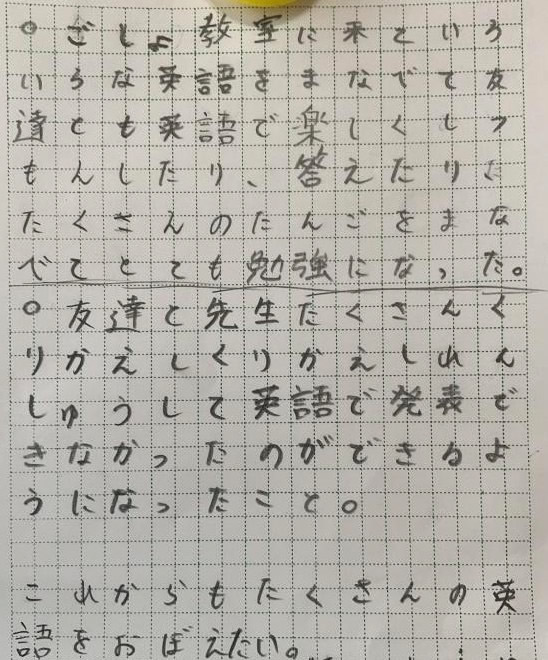 ○ごしょ教室に来ていろ
いろな英語をまなでて友
達とも英語で楽しくしつ
もんしたり、答えたり
たくさんのたんごをまな
べてとても勉強になった。
○友達と先生たくさんく
りかえしくりかえしれん
しゅうして英語で発表で
きなかったのができるよ
うになったこと。
これからもたくさんの英
語をおぼえたい。